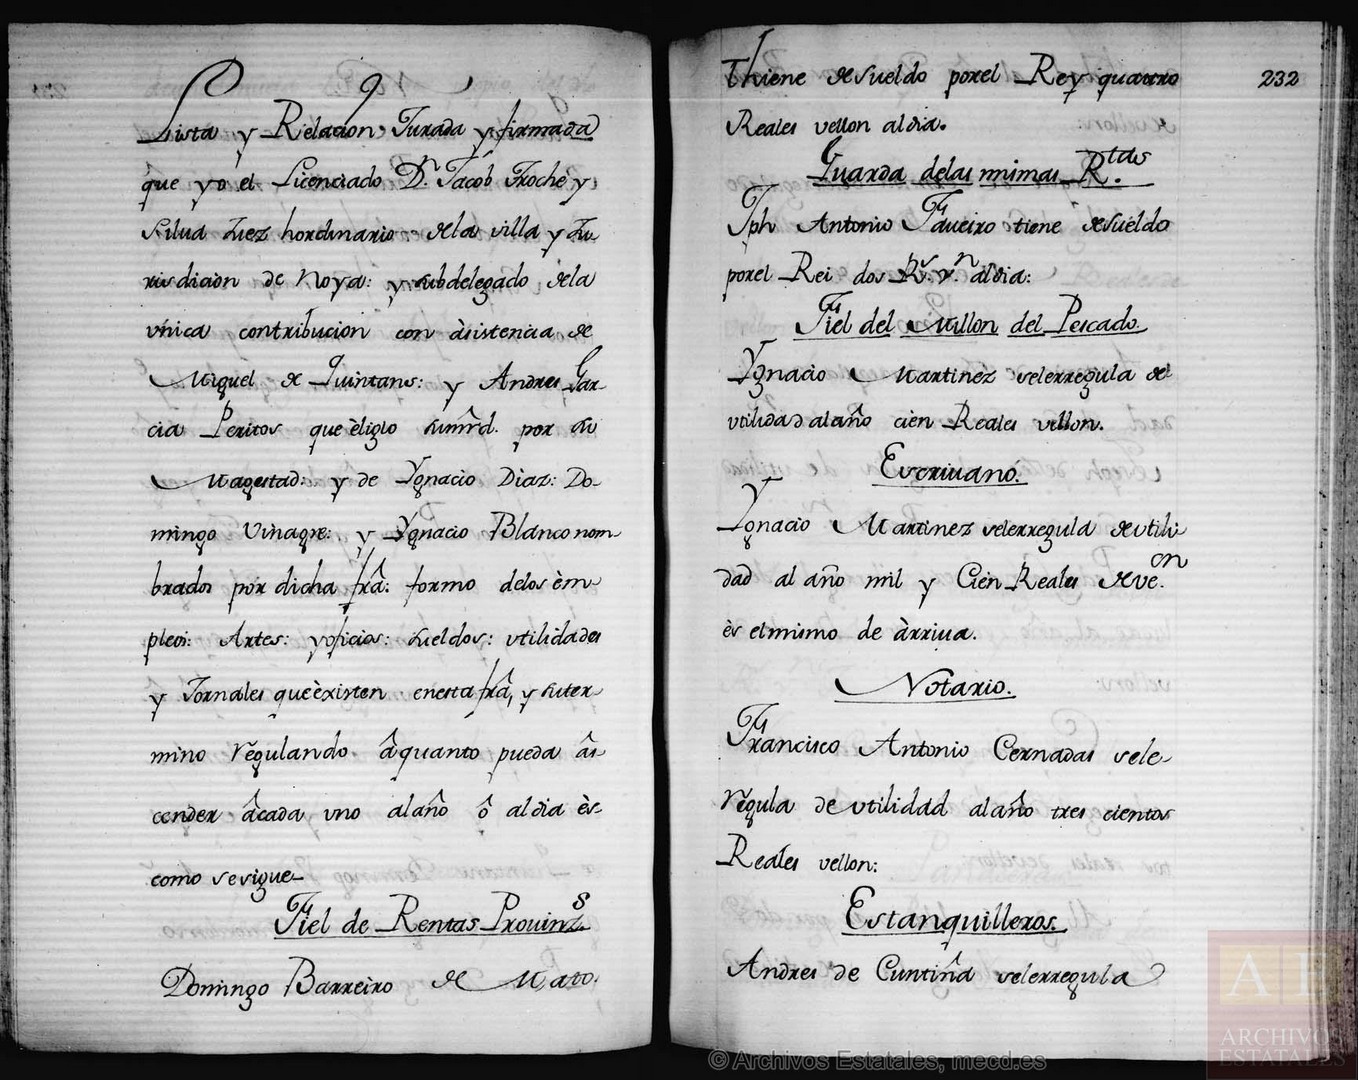 Lista y Relacion Jurada y firmada
que yo el Licenciado Dn. Jacob Troche y
Silua Juez hordinario dela villa y Ju-
risdicion de Noya: y subdelegado dela
vnica contribucion con àsistencia de
Miguel de Quintans: y Andres Gar-
cia Peritos que èligio por su
Magestad: y de Ygnacio Diaz: Do-
mingo Vinagre: y Ygnacio Blanco nom-
brados por dicha frâ: formo delos èm-
pleos: Artes: y oficios: sueldos: vtilidades
y Jornales que èxisten enesta frâ, y suter-
mino regulando âquanto pueda âs-
cender âcada vno alaño ô aldia ès-
como sesigue
Fiel de Rentas Prouinzs.
Domingo Barreiro de Mato.
Thiene desueldo porel Rey quatro
Reales vellon aldia.
Guarda delas mimas Rtas.
Jph Antonio Faueiro tiene desueldo
porel Rei dos Rs. vn. aldia:
Fiel del Millon del Pescado.
Ygnacio Martinez selerregula de
vtilidad alaño cien Reales vellon.
Escriuano.
Ygnacio Martinez selerregula devtili-
dad al año mil y Cien Reales deveon.
ès elmismo de àrriua.
Notario.
Francisco Antonio Cernadas sele-
regula de vtilidad alaño tres cientos
Reales vellon:
Estanquilleros.
Andres de Cuntiña selerregula
232
© Archivos Estatales, mecd.es
AE
ARCHIVOS
ESTATALES